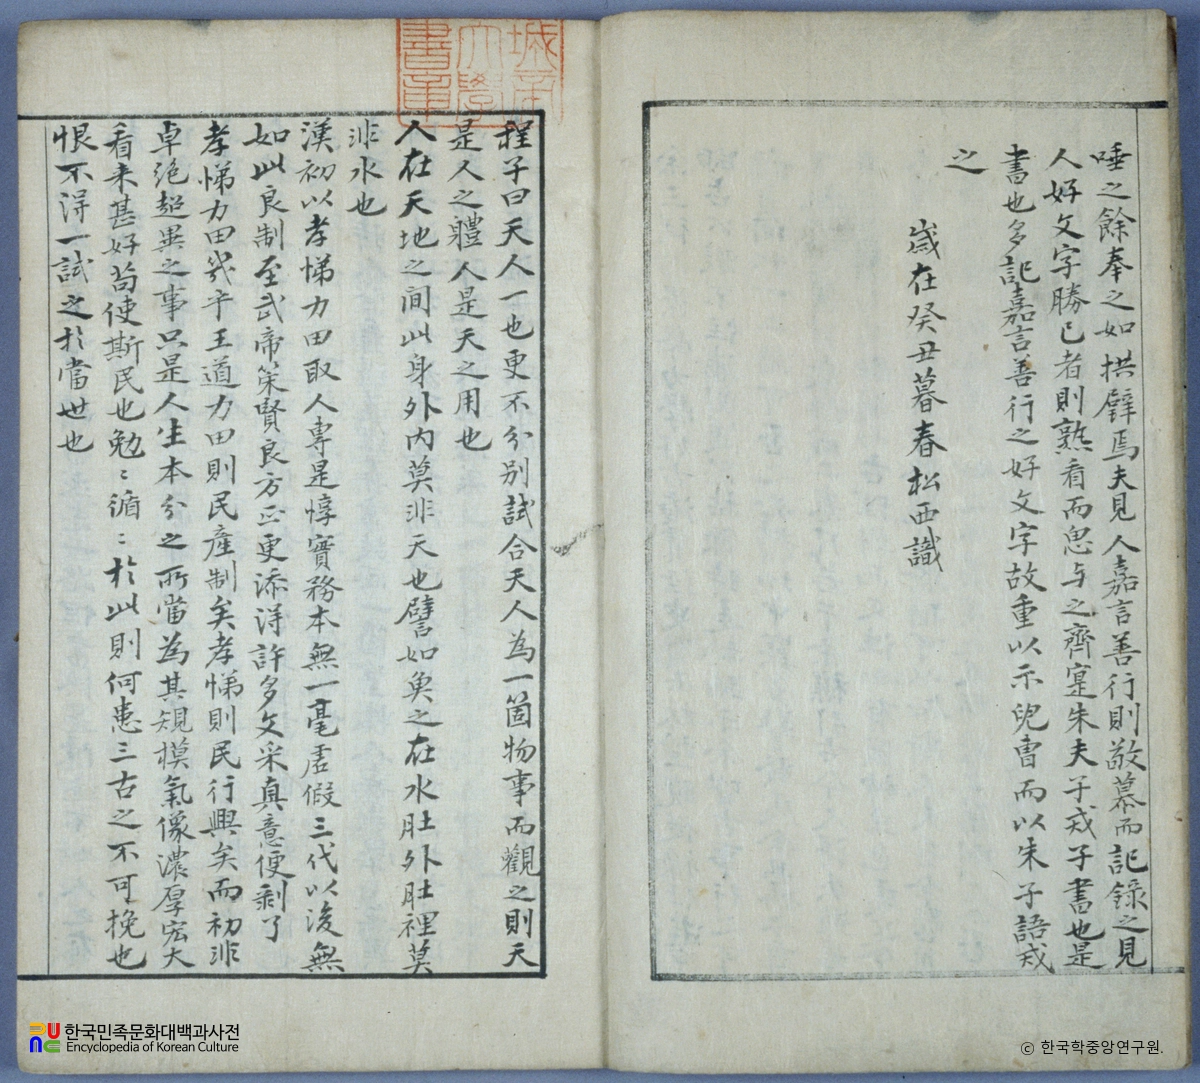 唾之餘奉之如拱璧焉夫見人嘉言善行則敬慕而記錄之見
人好文字勝已者則熟看而思与之齊寔朱夫子戎子書也是
書也多記嘉言善行之好文字故重以示兒曹而以朱子語戎
之
歲在癸丑暮春松西識
程子曰天人一也更不分别試合天人為一箇物事而觀之則天
是人之軆人是天之用也
人在天地之間此身外内莫非天也譬如魚之在水肚外肚裡莫
非水也
漢初以孝悌力田取人專是惇實務本無一毫虛假三代以後無
如此良制至武帝策賢良方正更添得許多文采真意便剩了
孝悌力田幾乎王道力田則民產制矣孝悌則民行興矣而初非
卓絶超異之事只是人生本分之所當為其規模氣像濃厚宏大
看来甚好苟使斯民也勉〻循〻於此則何患三古之不可挽也
恨不淂一試之於當世也
한국민족문화대백과사전
Encyclopedia of Korean Culture
ⓒ 한국학중앙연구원.